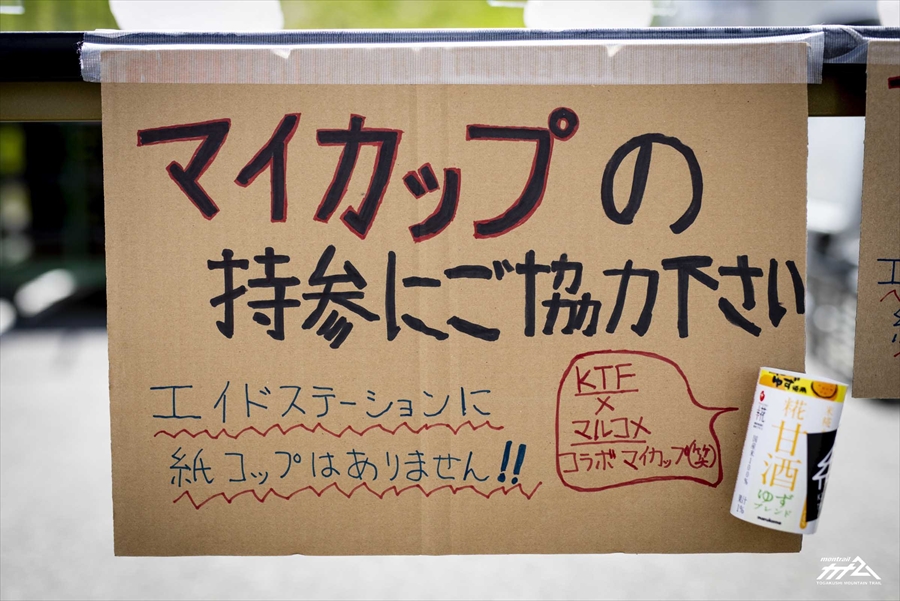 マイカップの
持参にご協力下さい
エイドステーションに
紙コップはありません!!
KTF
×
マルコメ
コラボマイカップ(笑)
ゆず
糀
甘酒
ゆず
ブレンド
marukome
montrail